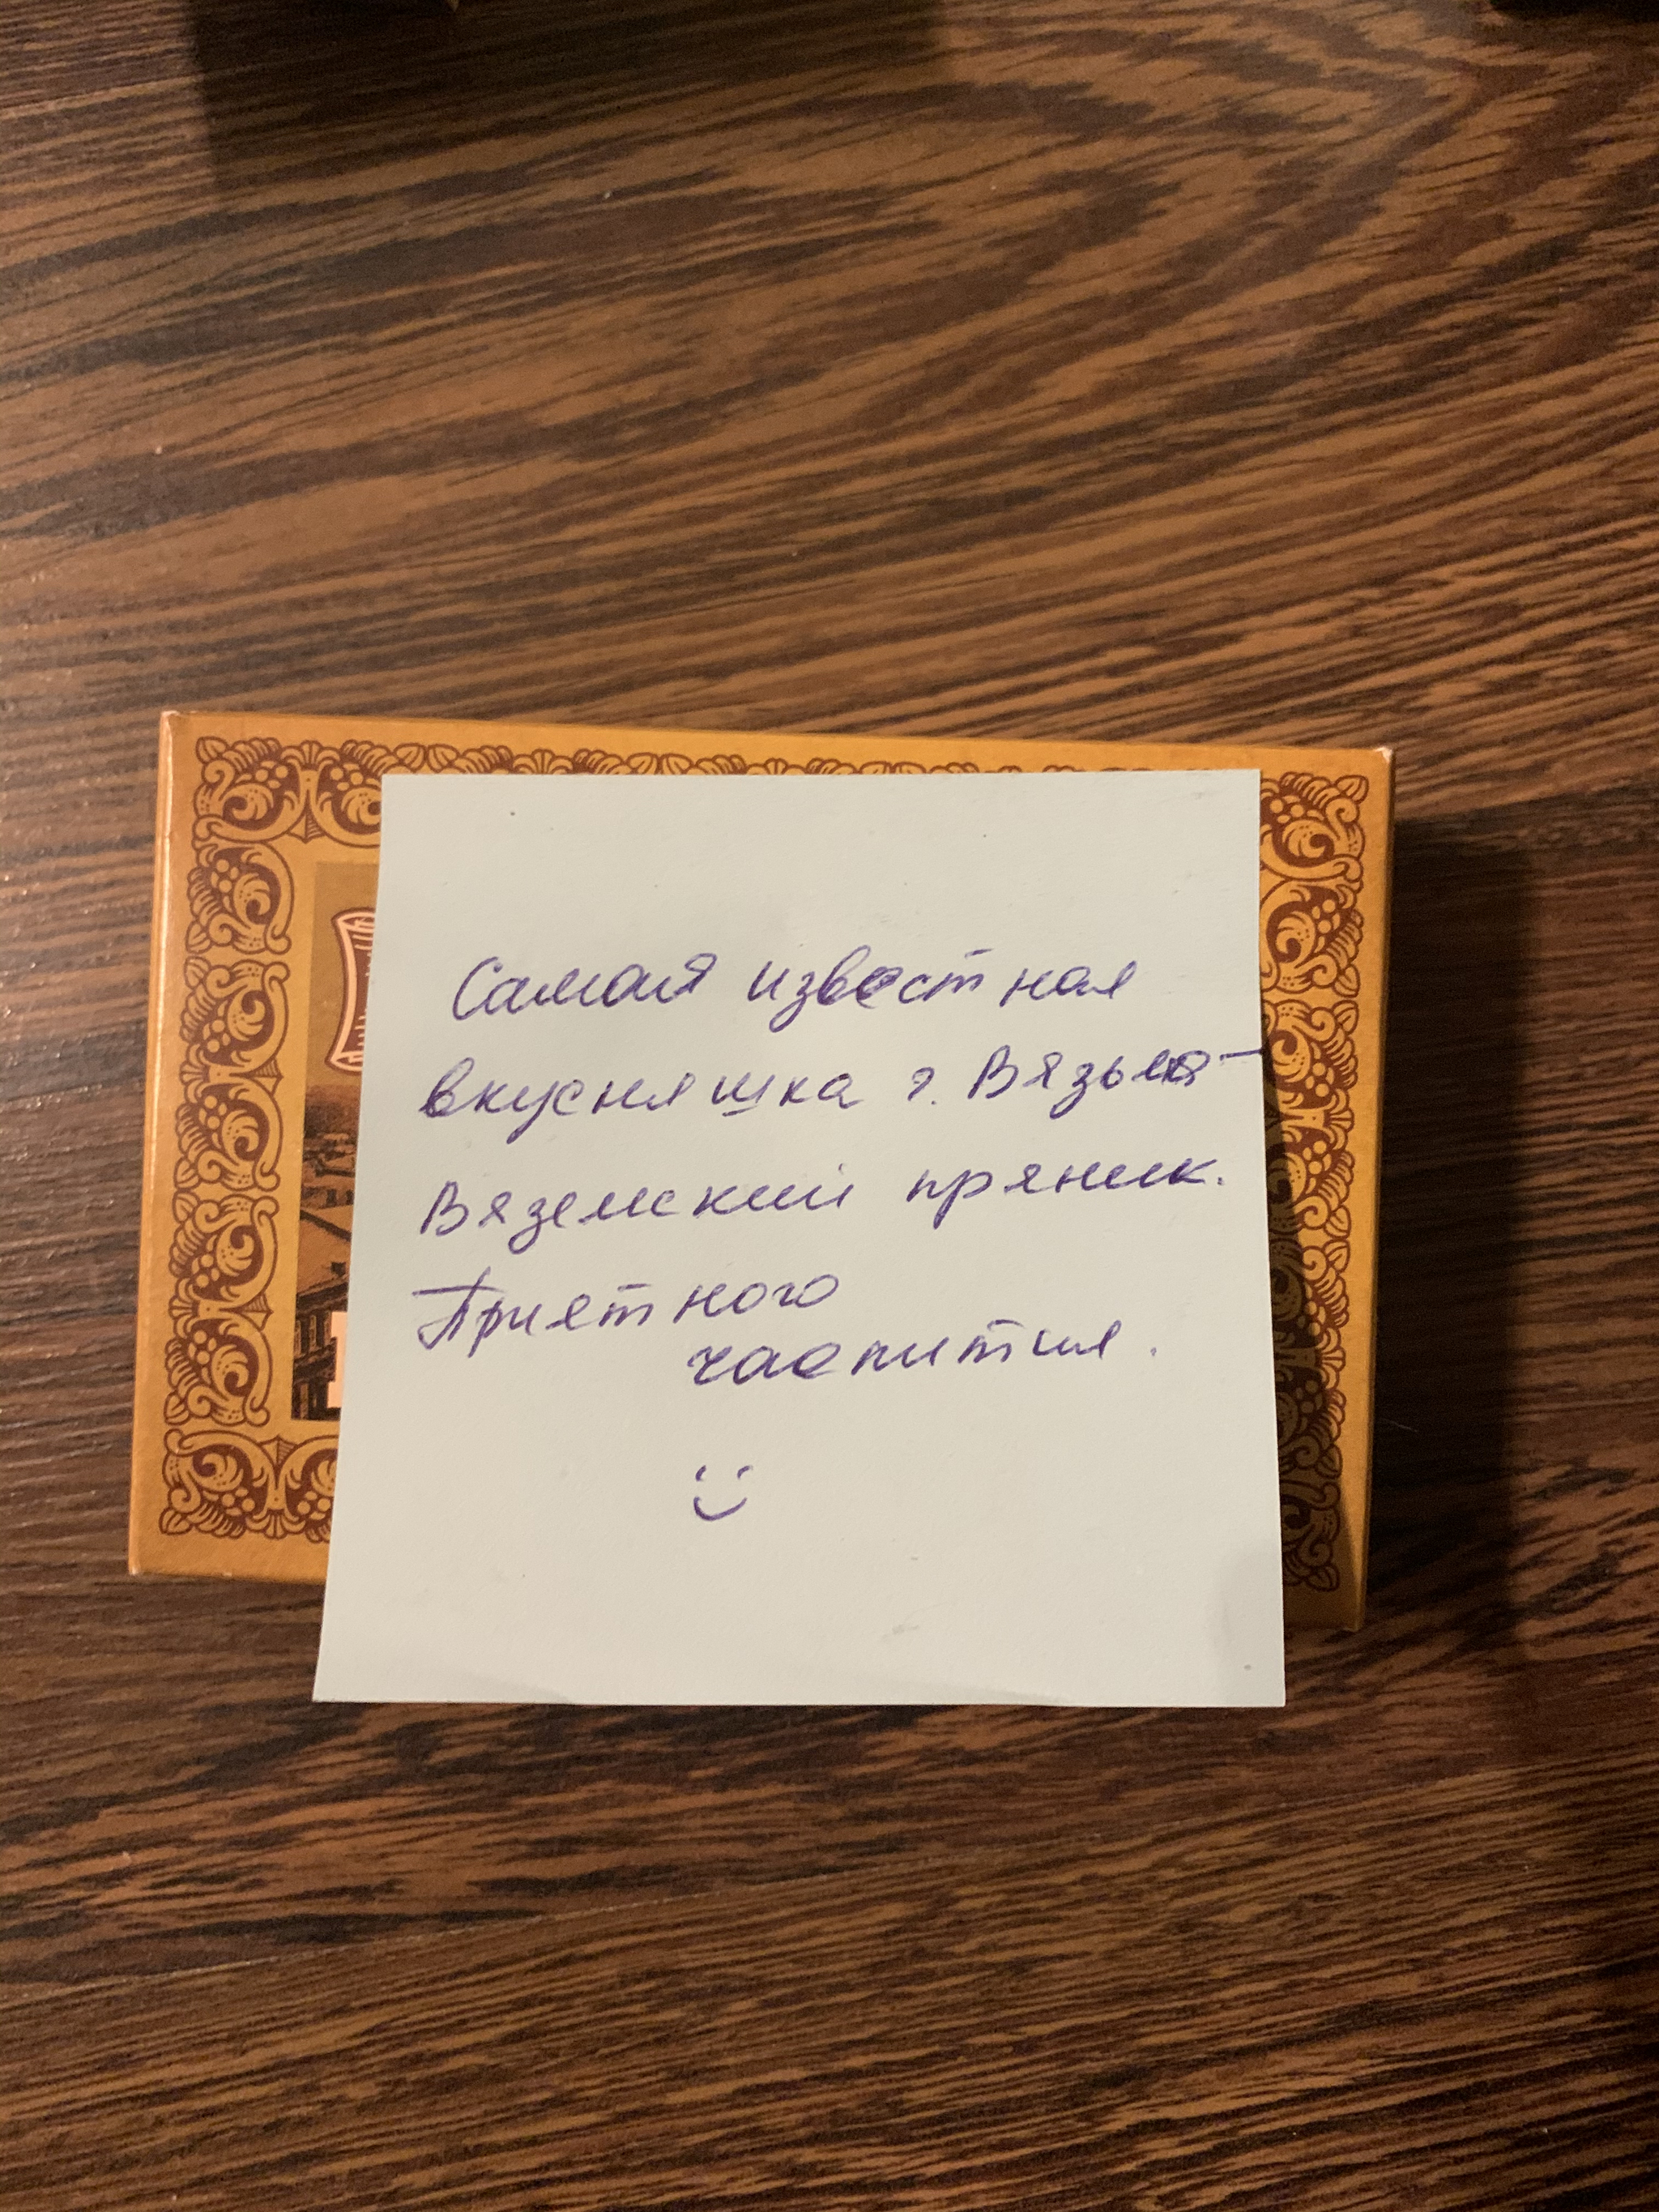 Самая известная
вкусняшка г. Вязьма -
Вяземский пряник.
Приятного
чаепития.